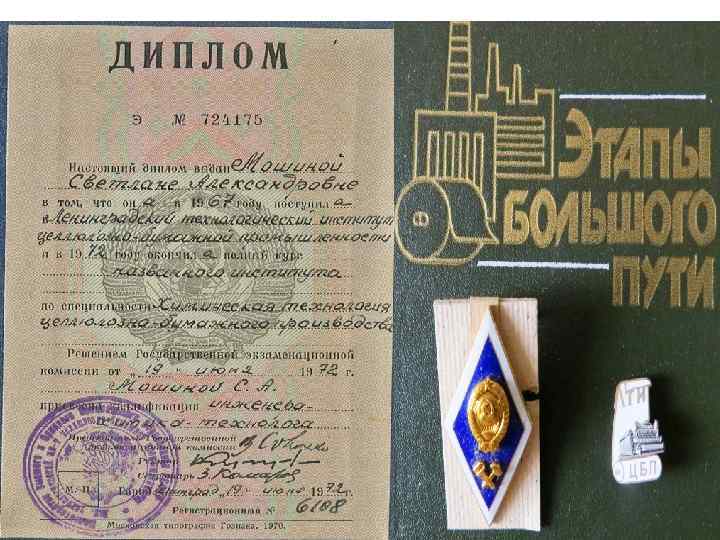 ДИПЛОМ
Э № 724175
Настоящий диплом выдан Машиной
Светлане Александровне
в том, что он а в 1967 году поступила
в Ленинградский технологический институт
целлюлозно-бумажной промышленности
и в 1972 году окончила полный курс
названного института
по специальности Химическая технология
целлюлозно-бумажного производства
Решением Государственной экзаменационной
комиссии от „19" июня 1972 г.
Машиной С. А.
присвоена квалификация инженера-
химика-технолога
Председатель Государственной
экзаменационной комиссии
Секретарь З. Комаров
М. П. Город Ленинград „19" июня 1972 г.
Регистрационный № 6108
Московская типография Гознака. 1970.
Этапы
большого
пути
ЛТИ
ЦБП